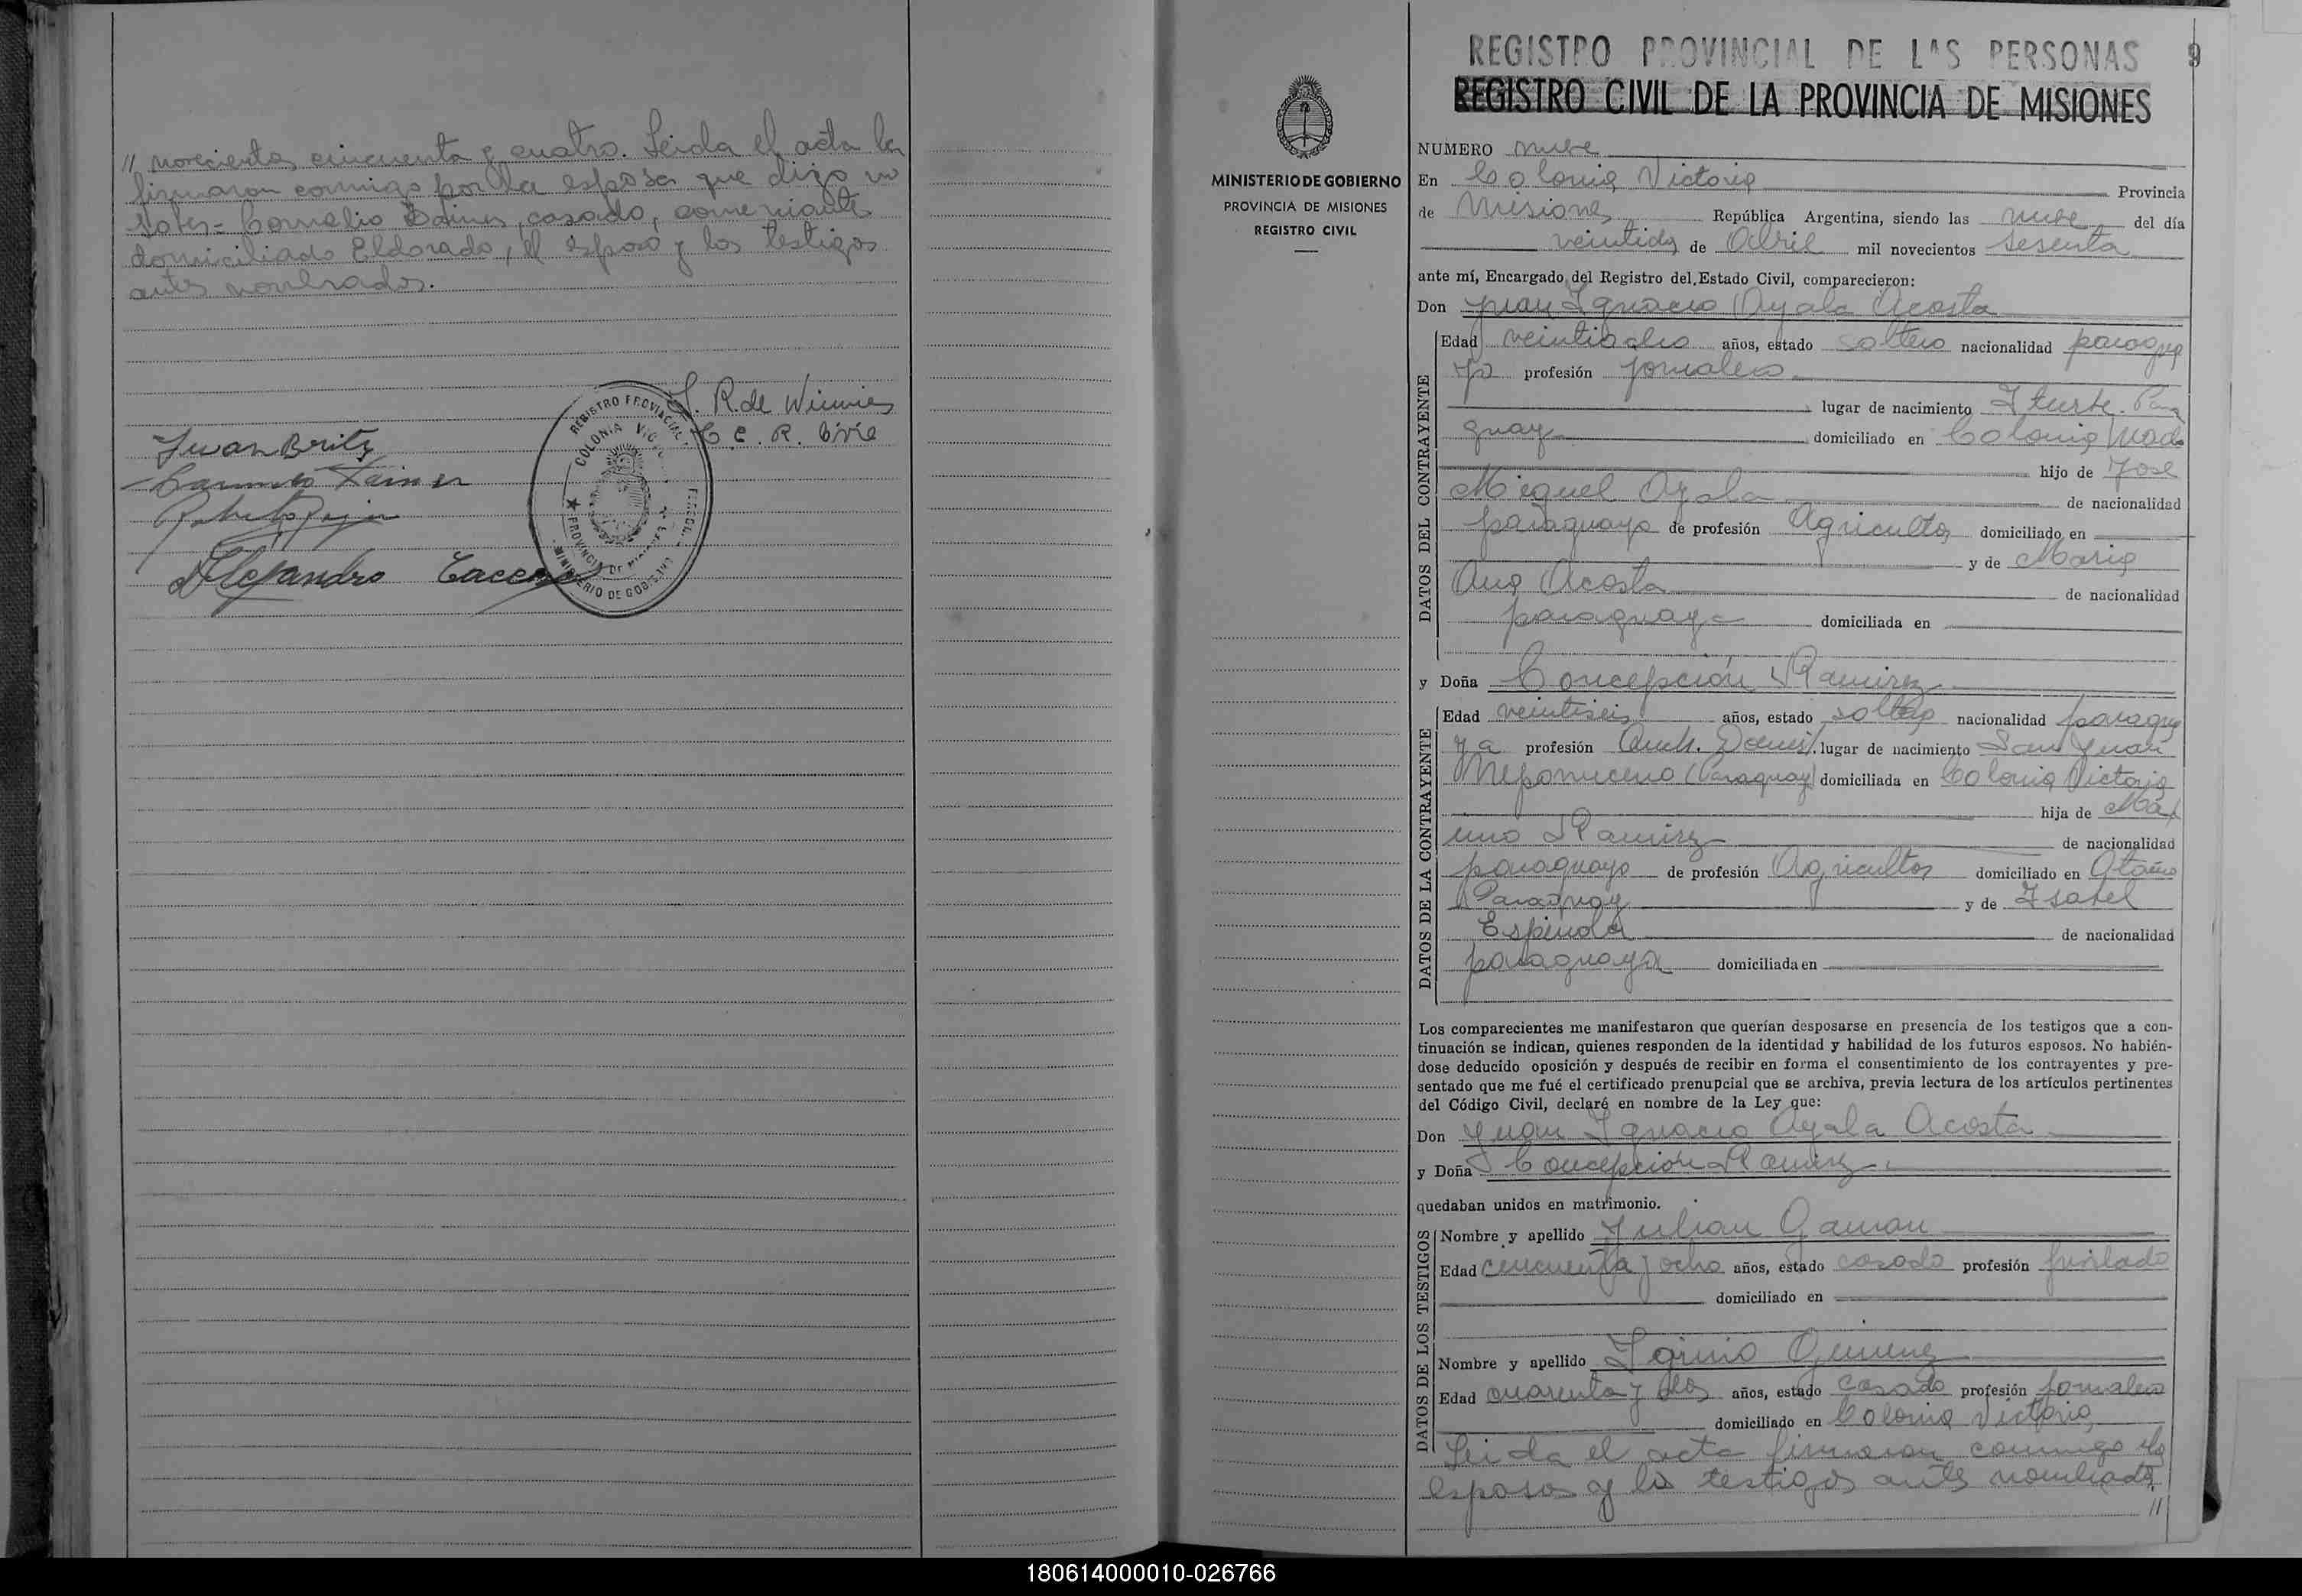 // novecientos cincuenta y cuatro. Leida el acta la
firmaron conmigo por la esposa que dijo no
saber= Cornelio Dainer, casado, comerciante
domiciliado Eldorado, el esposo y los testigos
antes nombrados.
J. R. de Winnies
E. R. Civil
Juan Britz
Alejandro
REGISTRO PROVINCIAL
COLONIA VIC
PROVINCIA DE MISIONES
MINISTERIO DE GOBIERNO
REGISTRO PROVINCIAL DE LAS PERSONAS 9
REGISTRO CIVIL DE LA PROVINCIA DE MISIONES
MINISTERIO DE GOBIERNO
PROVINCIA DE MISIONES
REGISTRO CIVIL
NUMERO nueve
En Colonia Victoria Provincia
de Misiones República Argentina, siendo las nueve del día
veintidos de Abril mil novecientos sesenta
ante mí, Encargado del Registro del Estado Civil, comparecieron:
Don Juan Ignacio Ayala Acosta
DATOS DEL CONTRAYENTE
Edad veintiocho años, estado soltero nacionalidad paragua
yo profesión jornalero
lugar de nacimiento Iturbe. Para
guay domiciliado en Colonia
hijo de José
Miguel Ayala de nacionalidad
paraguayo de profesión Agricultor domiciliado en
y de Maria
Ana Acosta de nacionalidad
paraguaya domiciliada en
y Doña Concepción Ramirez
DATOS DE LA CONTRAYENTE
Edad veintiseis años, estado soltera nacionalidad paragua
ya profesión Queh. Domest. lugar de nacimiento San Juan
Nepomuceno (Paraguay) domiciliada en Colonia Victoria
hija de Máx
imo Ramirez de nacionalidad
paraguayo de profesión Agricultor domiciliado en Otaño
Paraguay y de Isabel
Espinola de nacionalidad
paraguaya domiciliada en
Los comparecientes me manifestaron que querían desposarse en presencia de los testigos que a con-
tinuación se indican, quienes responden de la identidad y habilidad de los futuros esposos. No habién-
dose deducido oposición y después de recibir en forma el consentimiento de los contrayentes y pre-
sentado que me fué el certificado prenupcial que se archiva, previa lectura de los artículos pertinentes
del Código Civil, declaré en nombre de la Ley que:
Don Juan Ignacio Ayala Acosta
y Doña Concepción Ramirez
quedaban unidos en matrimonio.
DATOS DE LOS TESTIGOS
Nombre y apellido Julian Gaman
Edad cincuenta y ocho años, estado casado profesión jubilado
domiciliado en
Nombre y apellido Gimenez
Edad cuarenta y dos años, estado casado profesión jornalero
domiciliado en Colonia Victoria
Leida el acta firmaron conmigo los
esposos y los testigos antes nombrados
//
180614000010-026766